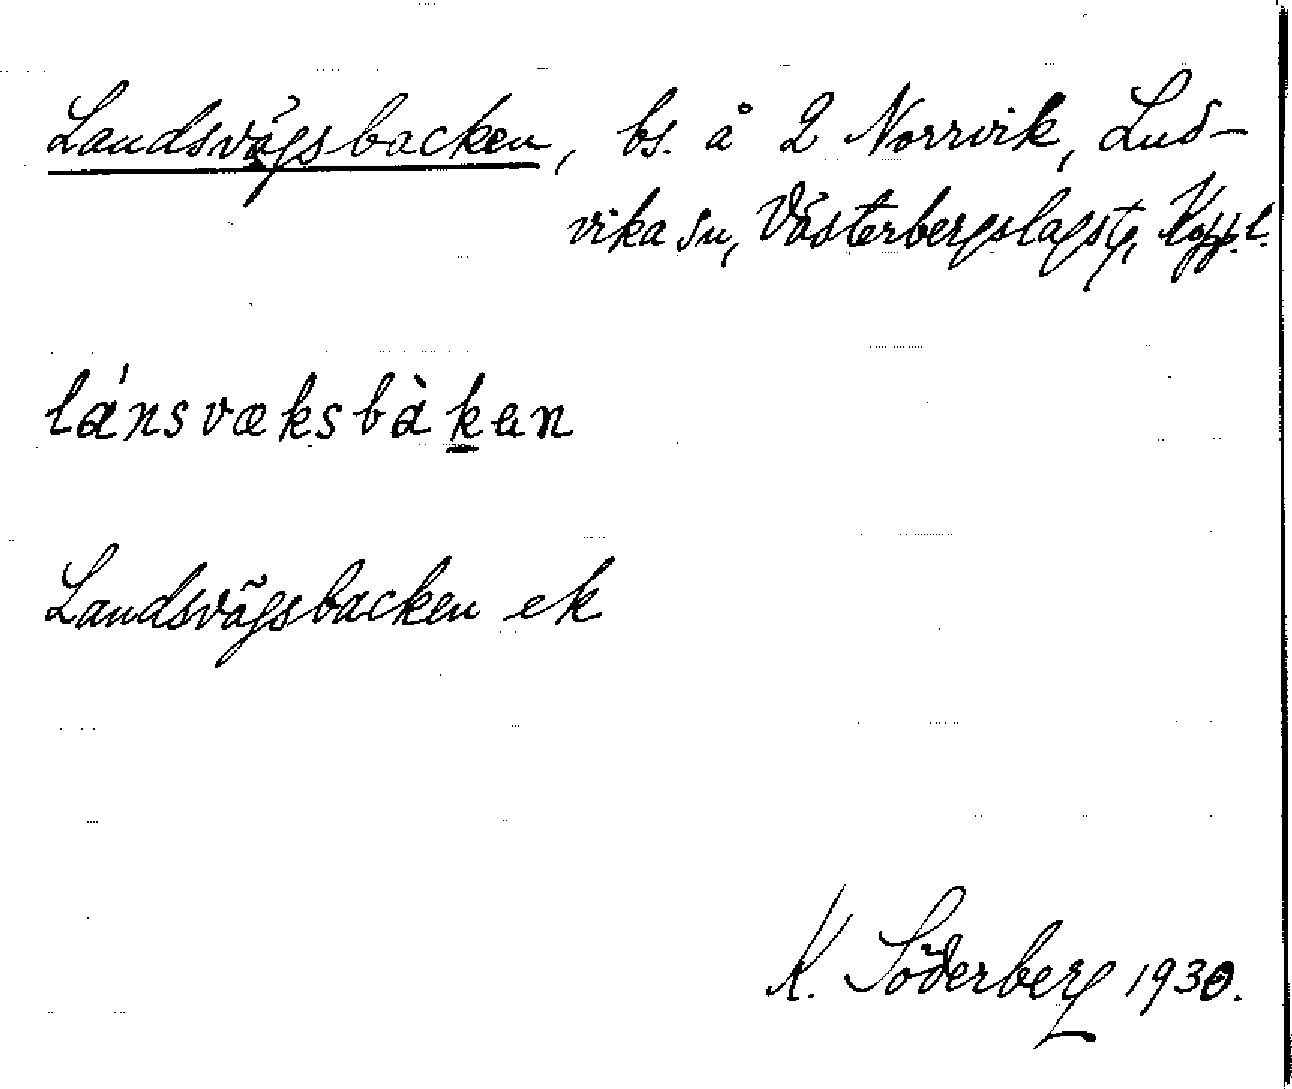 Landsvägsbacken, bs. å 2 Norrvik, Lud-
vika sn, Västerbergslags tg, Kopp. l.
lánsvæksbàkan
Landsvägsbacken ek
K. Söderberg 1930.